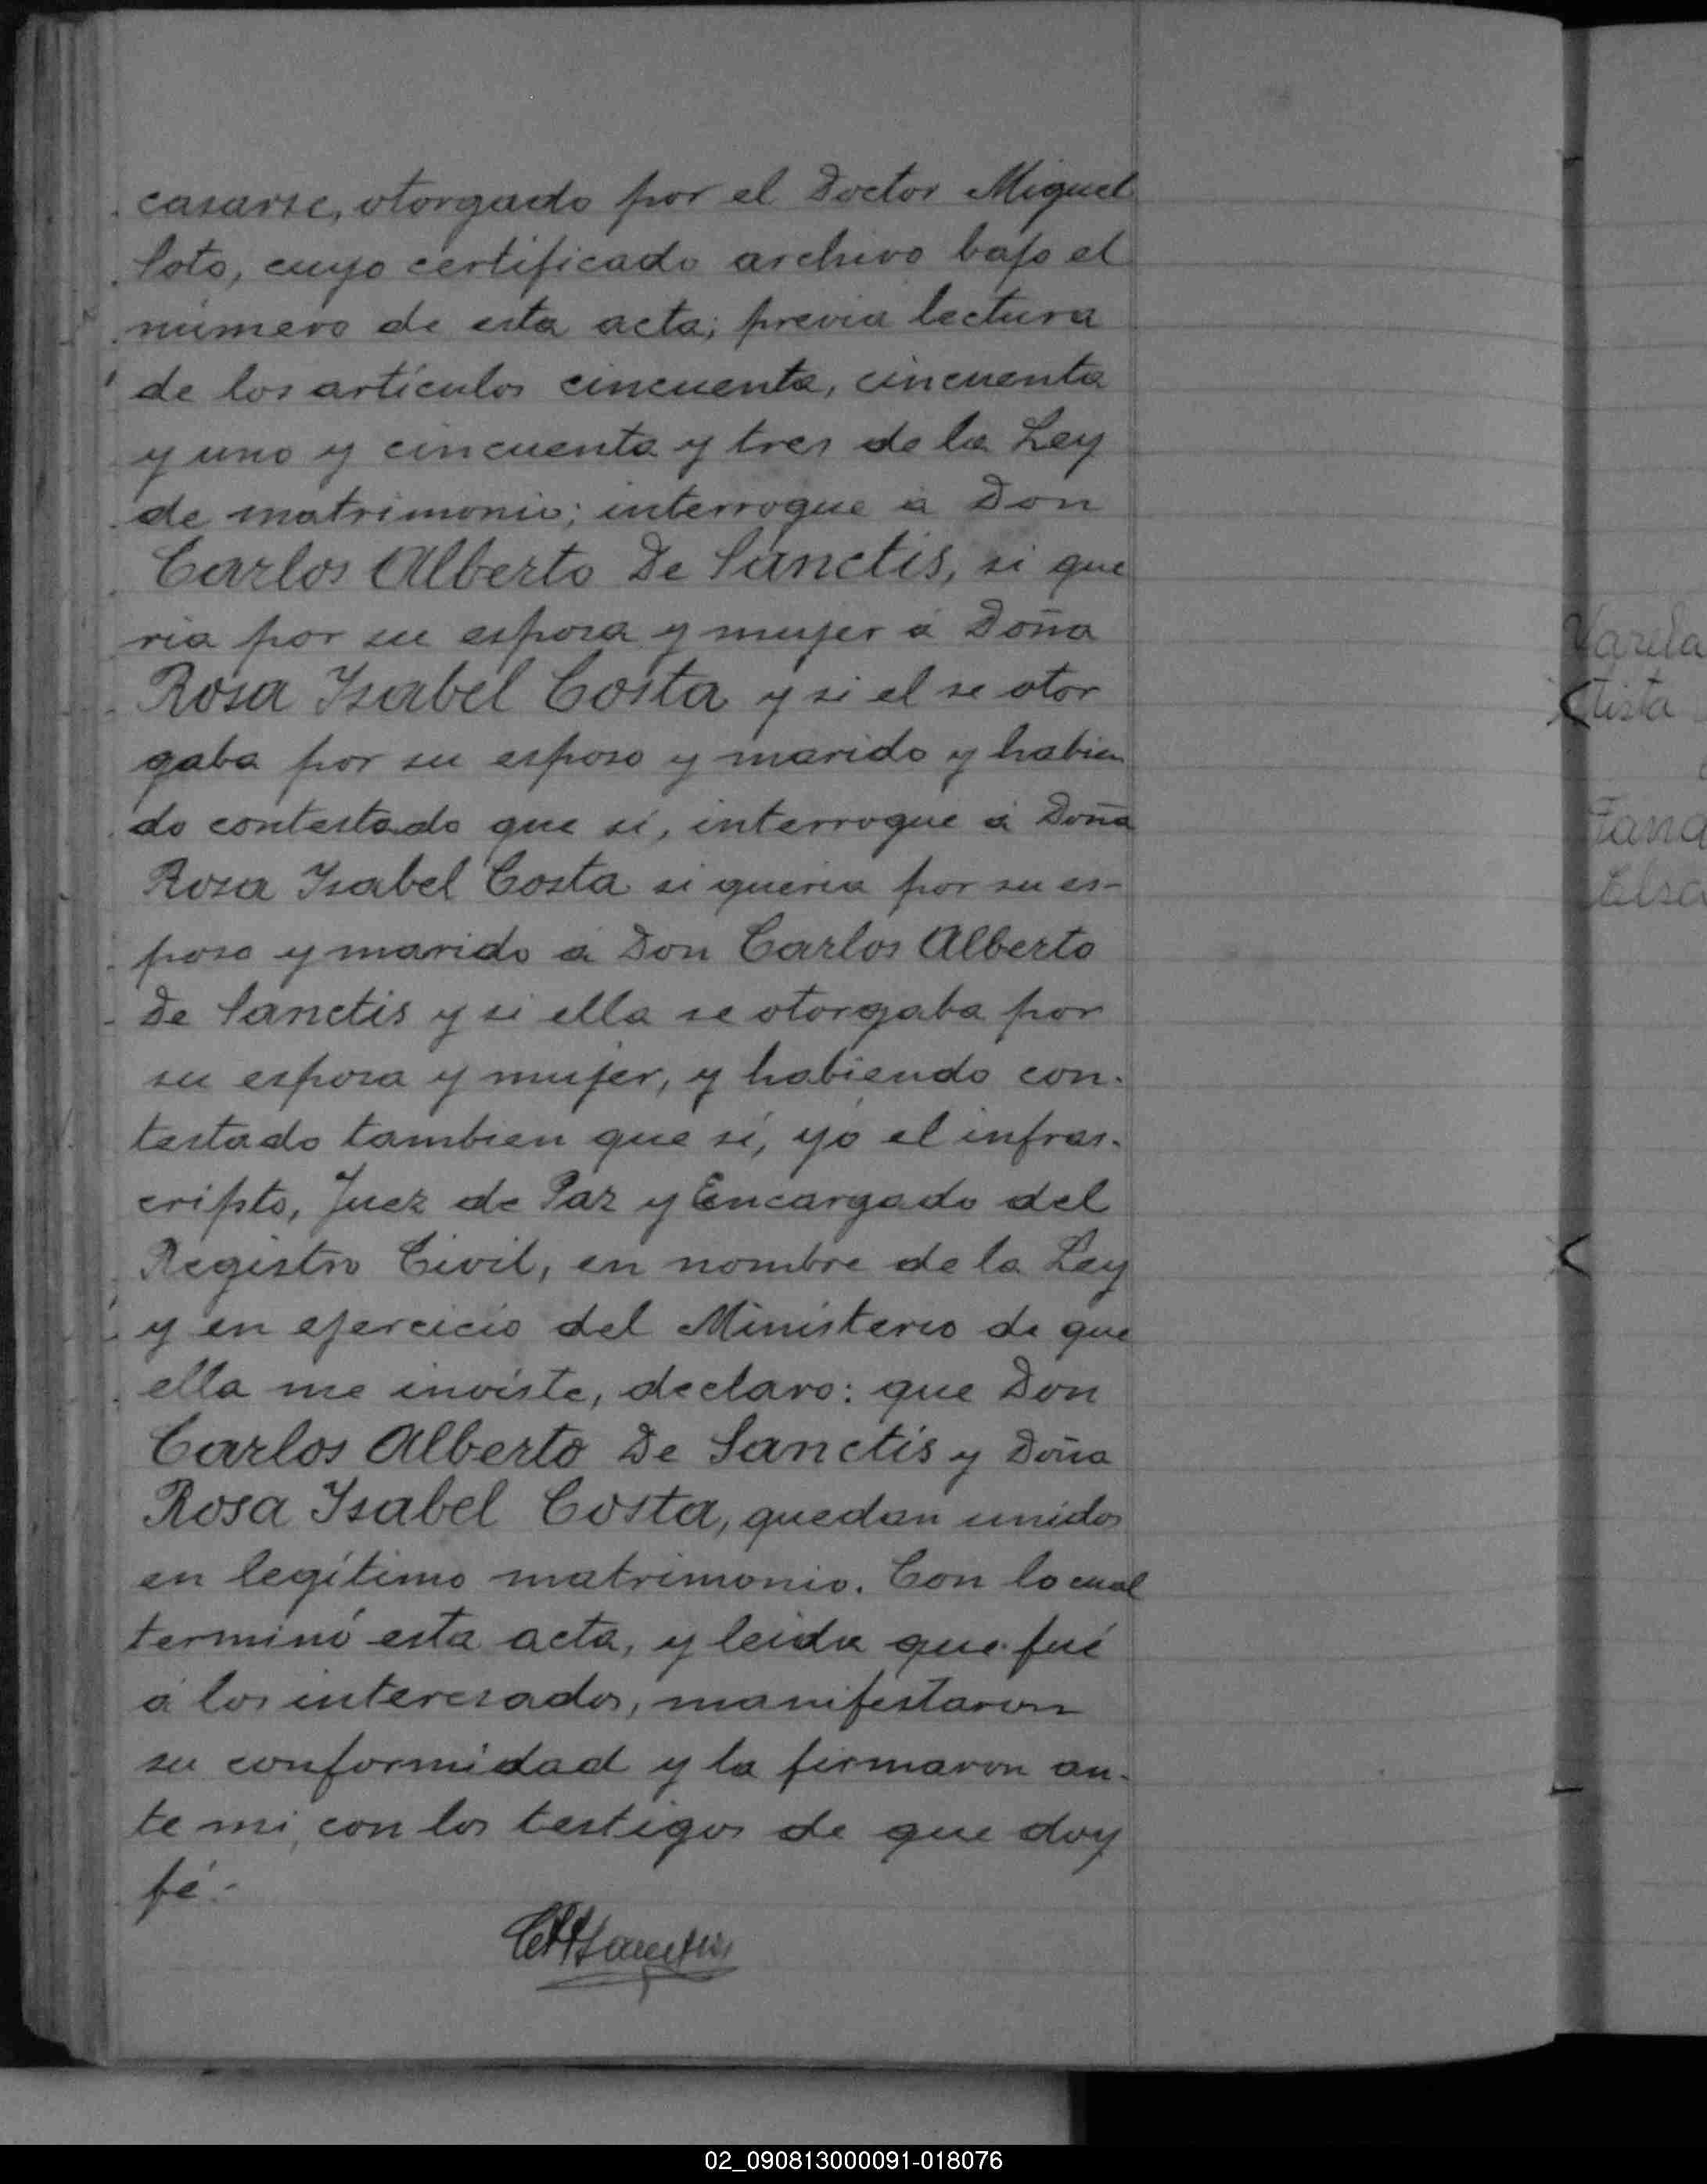 casarse, otorgado por el Doctor Miguel
Soto, cuyo certificado archivo bajo el
número de esta acta; previa lectura
de los artículos cincuenta, cincuenta
y uno y cincuenta y tres de la Ley
de matrimonio; interrogue á Don
Carlos Alberto De Sanctis, si que
ria por su esposa y mujer á Doña
Rosa Ysabel Costa y si el se otor
gaba por su esposo y marido y habien
do contestado que sí, interrogue á Doña
Rosa Ysabel Costa si queria por su es-
poso y marido á Don Carlos Alberto
De Sanctis y si ella se otorgaba por
su esposa y mujer, y habiendo con-
testado tambien que sí, yó el infras-
cripto, Juez de Paz y Encargado del
Registro Civil, en nombre de la Ley
y en ejercicio del Ministerio de que
ella me inviste, declaro: que Don
Carlos Alberto De Sanctis y Doña
Rosa Ysabel Costa, quedan unidos
en legítimo matrimonio. Con lo cual
terminó esta acta, y leida que fué
á los interesados, manifestaron
su conformidad y la firmaron an-
te mi, con los testigos de que doy
fé.-
Varela
Tista
Elsa
02_090813000091-018076